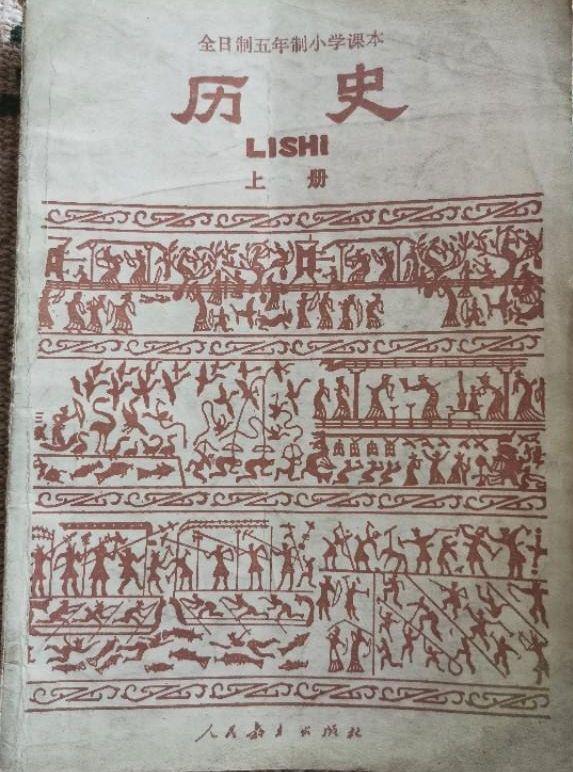 全日制五年制小学课本
历史
LISHI
上册
人民教育出版社